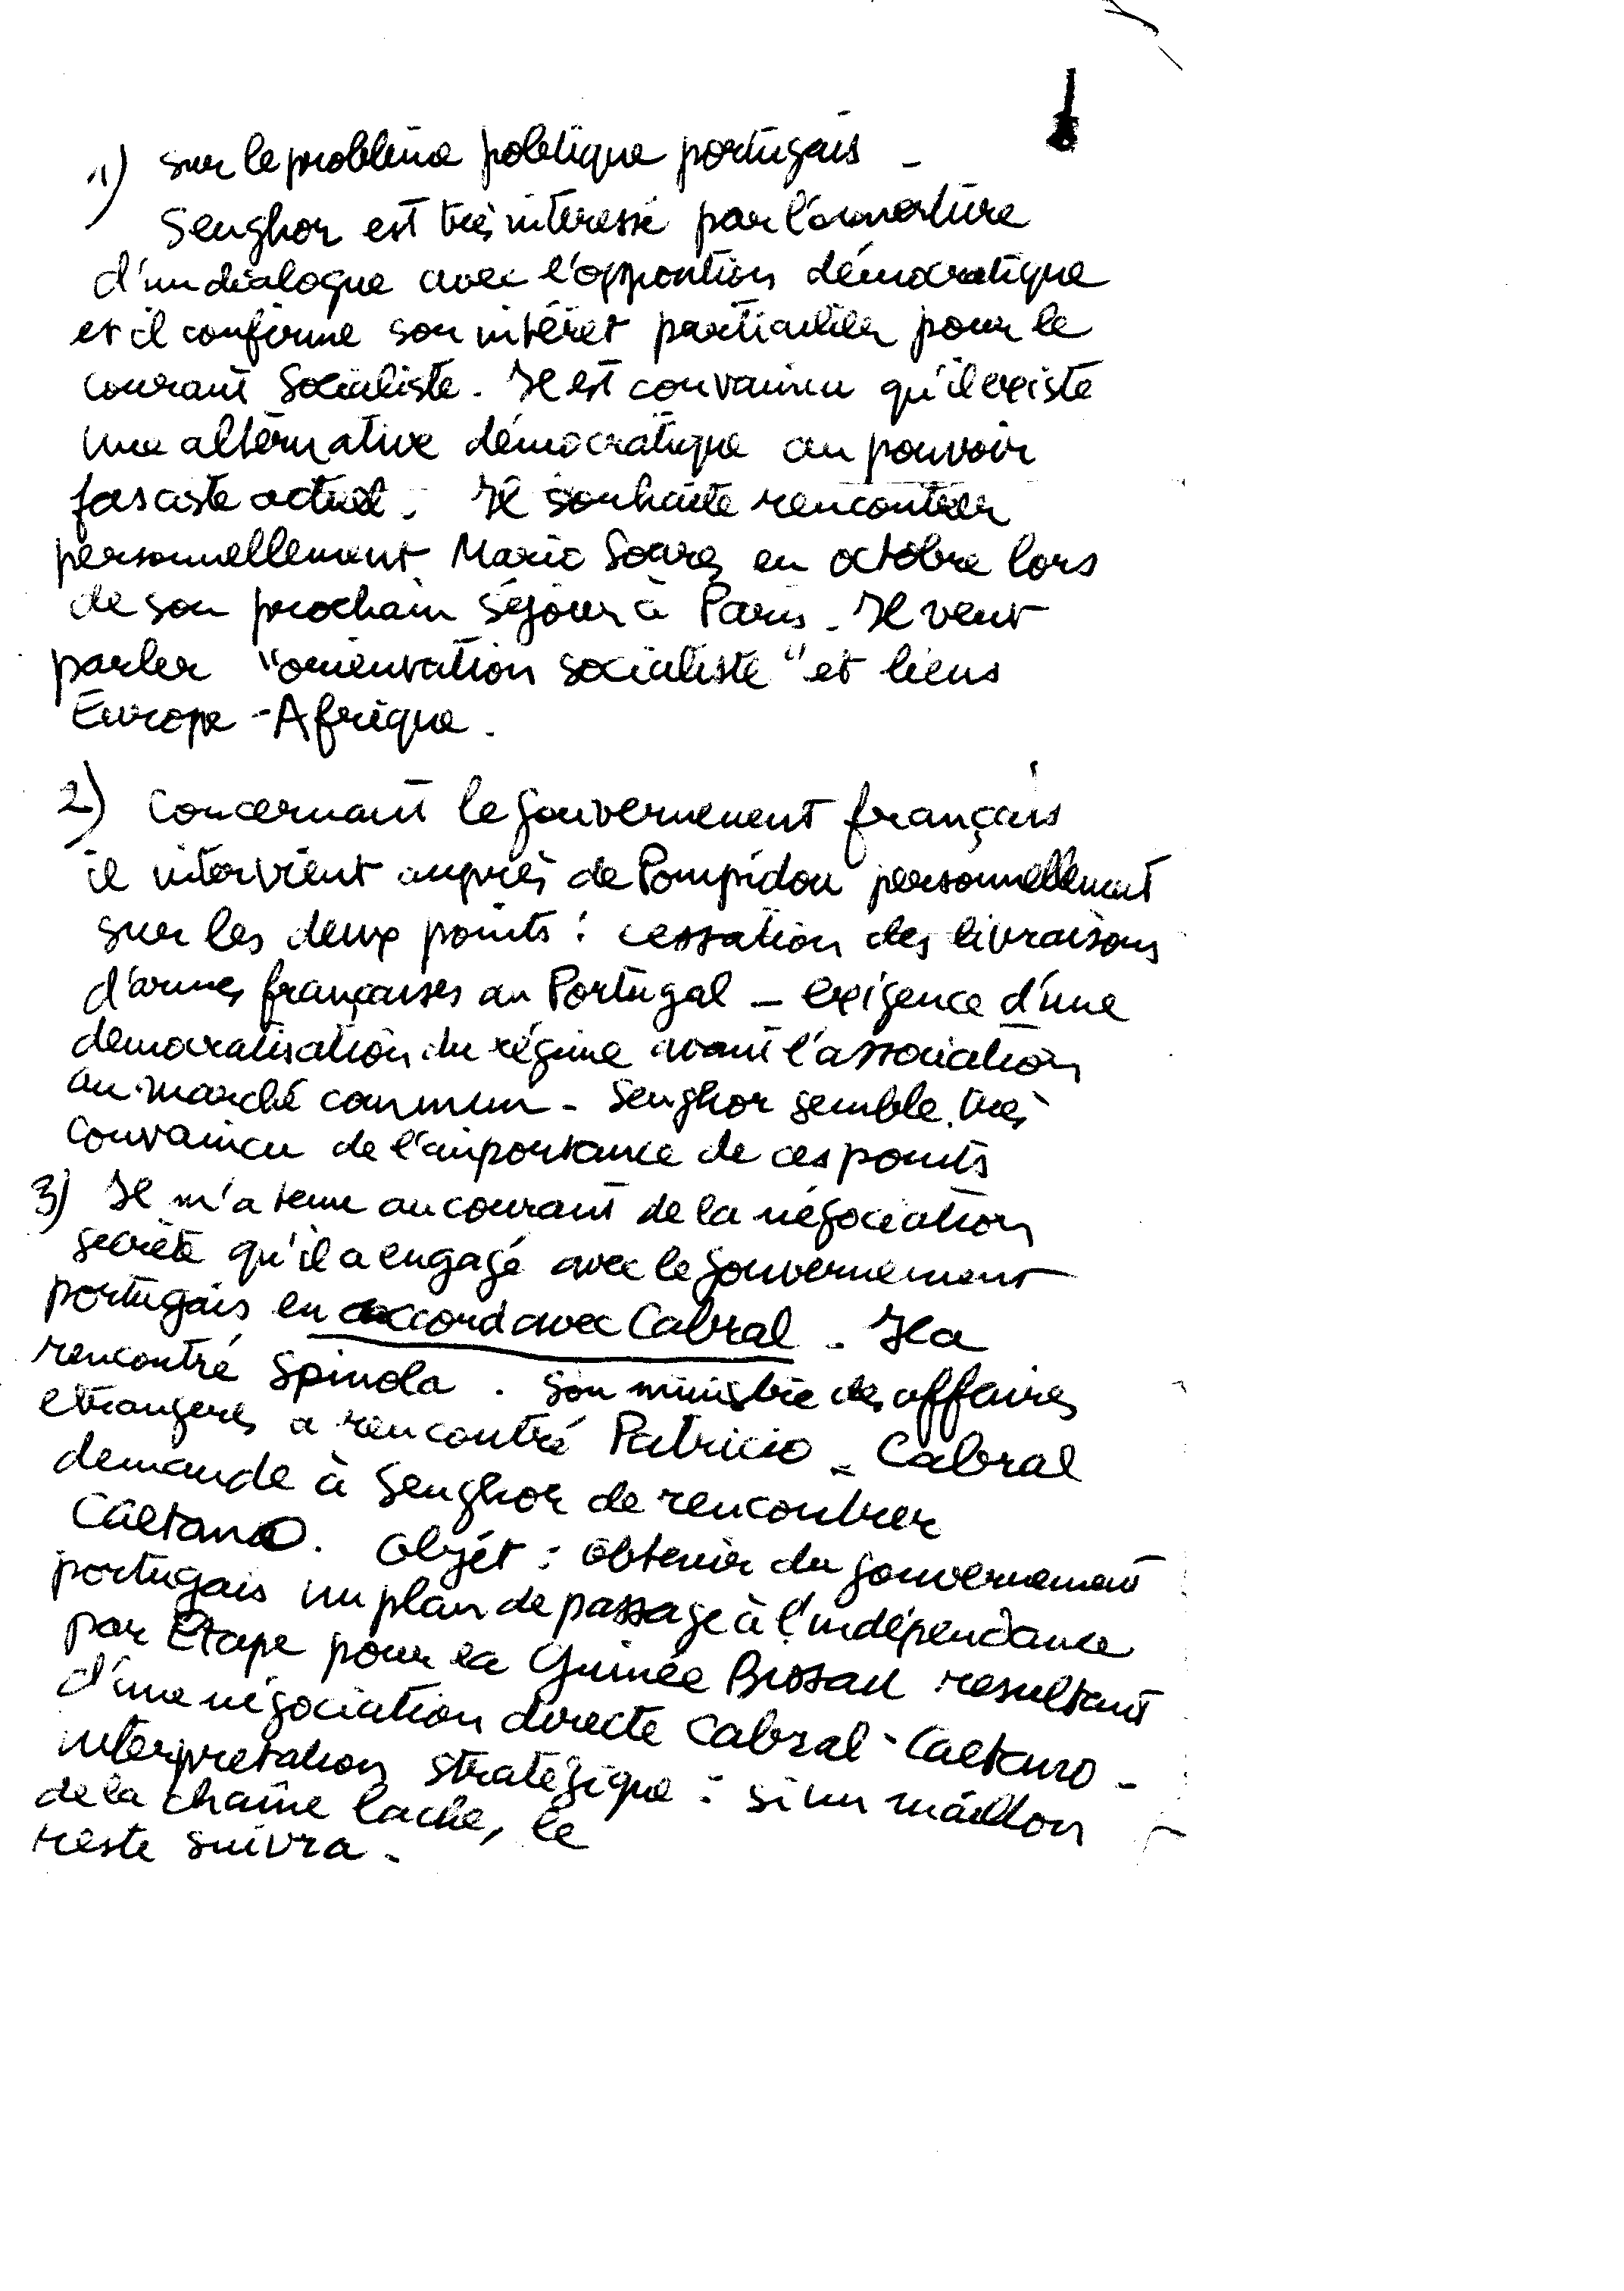 1) Sur le problème politique portugais -
Senghor est très intéressé par l'ouverture
d'un dialogue avec l'opposition démocratique
et il confirme son intérêt particulier pour le
courant Socialiste. Il est convaincu qu'il existe
une alternative démocratique au pouvoir
fasciste actuel. Il souhaite rencontrer
personnellement Mario Soares en octobre lors
de son prochain séjour à Paris. Il veut
parler "orientation socialiste" et liens
Europe-Afrique.
2) Concernant le gouvernement français
il intervient auprès de Pompidou personnellement
sur les deux points : cessation des livraisons
d'armes françaises au Portugal - exigence d'une
democratisation du régime avant l'association
au marché commun - Senghor semble très
convaincu de l'importance de ces points
3) Il m'a tenu au courant de la négociation
secrète qu'il a engagé avec le gouvernement
portugais en accord avec Cabral. Il a
rencontré Spinola. Son ministre des affaires
etrangeres a rencontré Patricio - Cabral
demande à Senghor de rencontrer
Caetano. Objet : obtenir du gouvernement
portugais un plan de passage à l'indépendance
par Etape pour la Guinée Bissau resultant
d'une négociation directe Cabral-Caetano -
interpretation stratégique : si un maillon
de la chaîne lache, le
reste suivra -